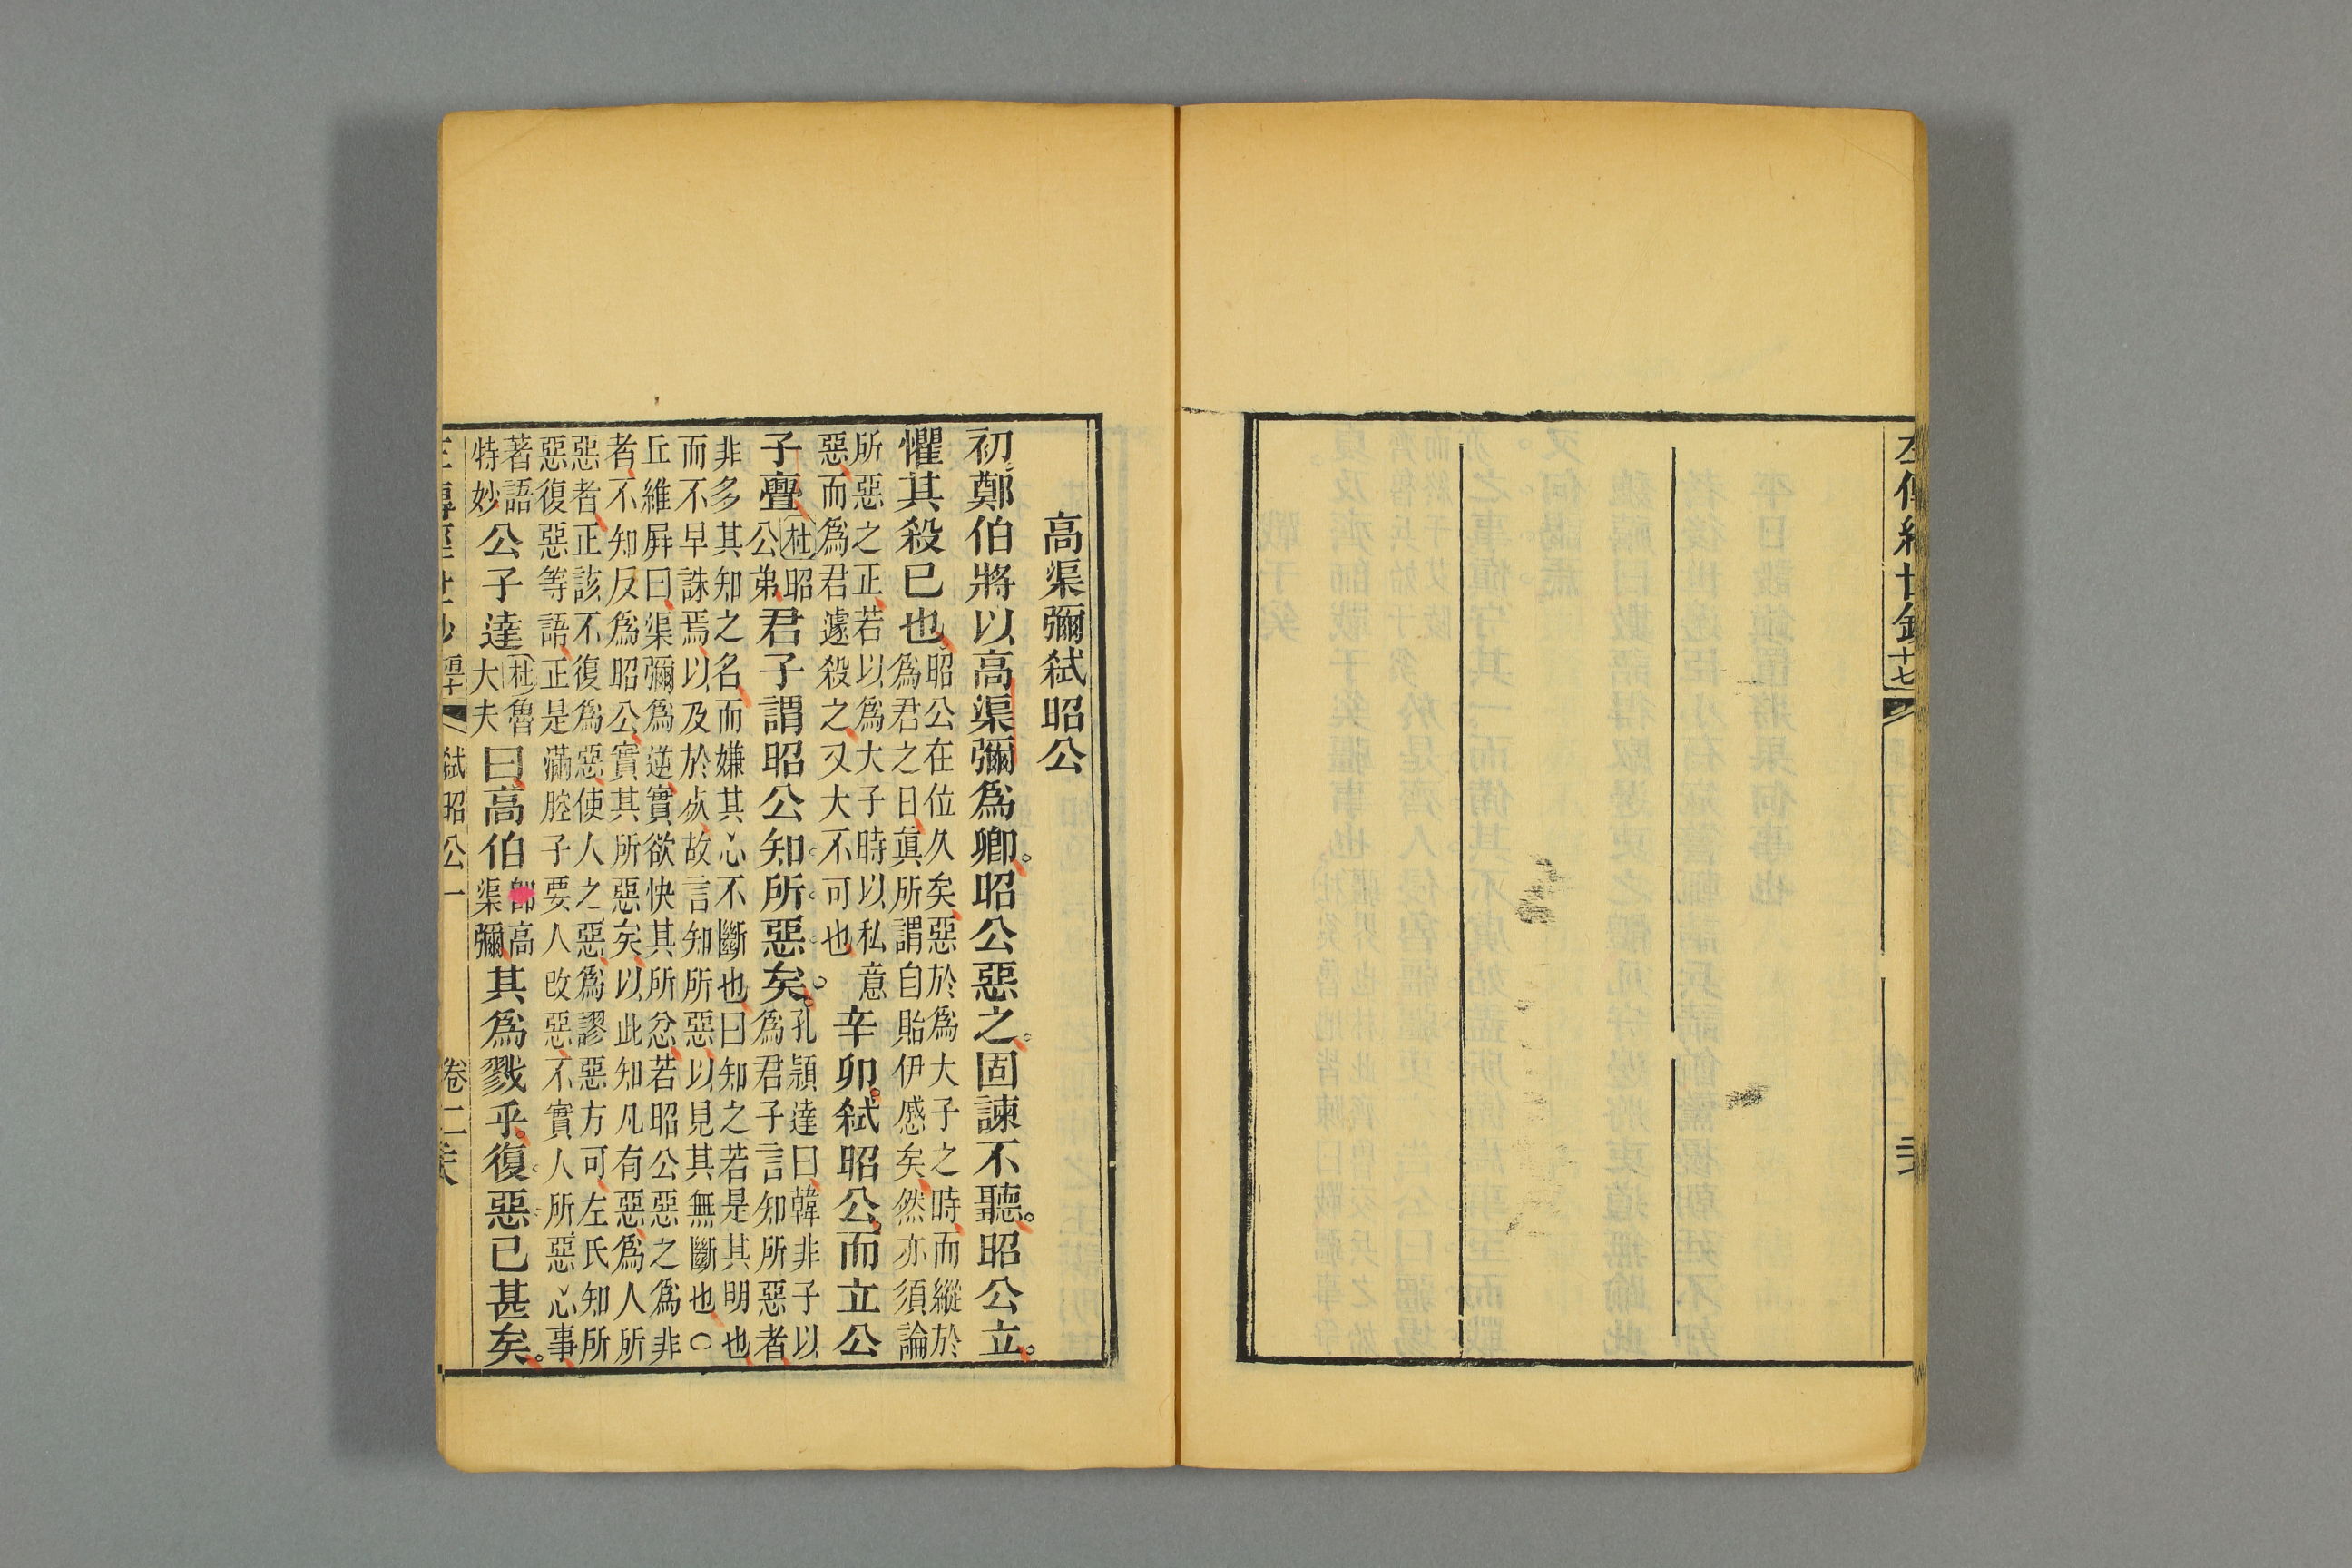 左傳經世鈔 十七
高渠彌弑昭公
初鄭伯將以高渠彌爲卿。昭公惡之。固諫不聽。昭公立。
懼其殺已也 昭公在位久矣惡於爲大子之時而縱於
爲君之日眞所謂自貽伊慼矣然亦須論
所惡之正若以爲大子時以私意
惡而爲君遽殺之又大不可也 辛卯。弑昭公而立公
子亹 杜昭
公弟 君子謂昭公知所惡矣。 孔穎達曰韓非子以
爲君子言知所惡者
非多其知之名而嫌其心不斷也曰知之若是其明也
而不早誅焉以及於死故言知所惡以見其無斷也○
丘維屛曰渠彌爲逆實欲快其所忿若昭公惡之爲非
者不知反爲昭公實其所惡矣以此知凡有惡爲人所
惡者正該不復爲惡使人之惡爲謬惡方可左氏知所
惡復惡等語正是滿腔子要人改惡不實人所惡心事
著語
特妙 公子達 杜魯
大夫 曰高伯 卽高
渠彌 其爲戮乎。復惡已甚矣。
弑昭公一 卷二